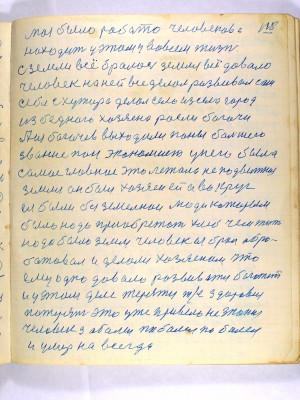 118
моя было работа человеков с
находит у этому и вовсем жизн
с земли всё бралось земля всё довало
человек на ней все делол розвивал сам
себя с хутира делол село из село город
из бедного хозяина росли богачи
А из богачев выходили паны большего
звание пан Экономист у него была
самое главное это летало не подвижная
земля он был хозяин ей а вокруг
ей были безземельни люди каторым
было нодо приобретат хлеб чем жит
нодо было землу человек ей брал обро
батовал и делолся хозяином это
ему одно довало розвивати богатит
и у этом деле теряти т/е здоровля
потерять это уже привело не
человик завалит по балет по балел
и умер на всегда